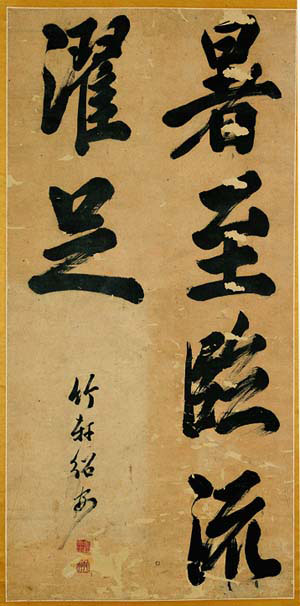 暑至臨流
濯足
竹軒紹安